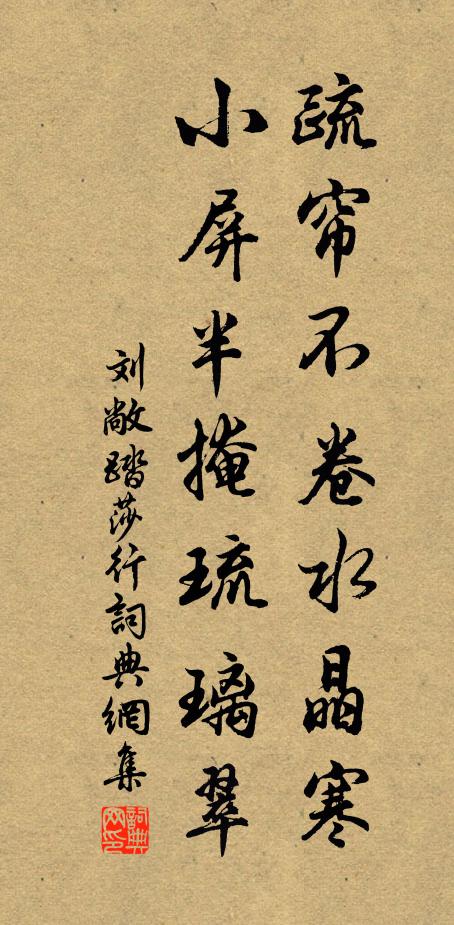 疏帘不卷水晶寒
小屏半掩琉璃翠
刘敞踏莎行詞典網集
詞典网印